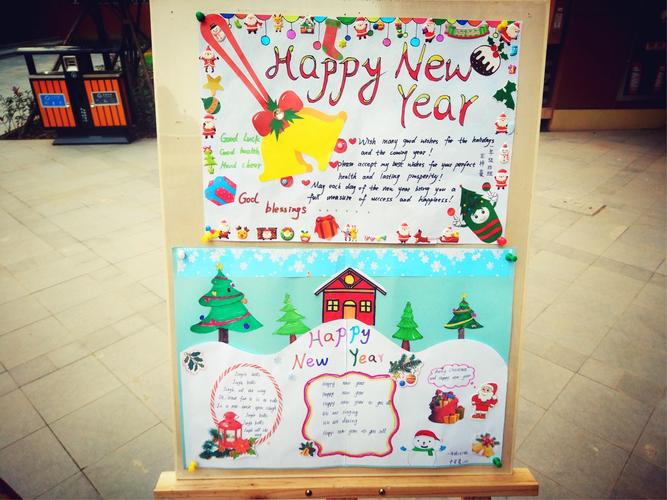 Happy New
Year
Good Luck
Good health
Good cheer
God
blessings ......
Wish many good wishes for the holidays
and the coming year!
please accept my best wishes for your perfect
health and lasting prosperity!
May each day of the new year bring you a
full measure of success and happiness!
Happy
New Year
Jingle bells
Jingle bells
Jingle all the way
Oh, what fun it is to ride
In a one horse open sleigh
Jingle bells
Jingle bells
Jingle all the
way
Happy new year
Happy new year
Happy new year to you all
We are singing
We are dancing
Happy new year to you all
Merry Christmas
and Happy new year